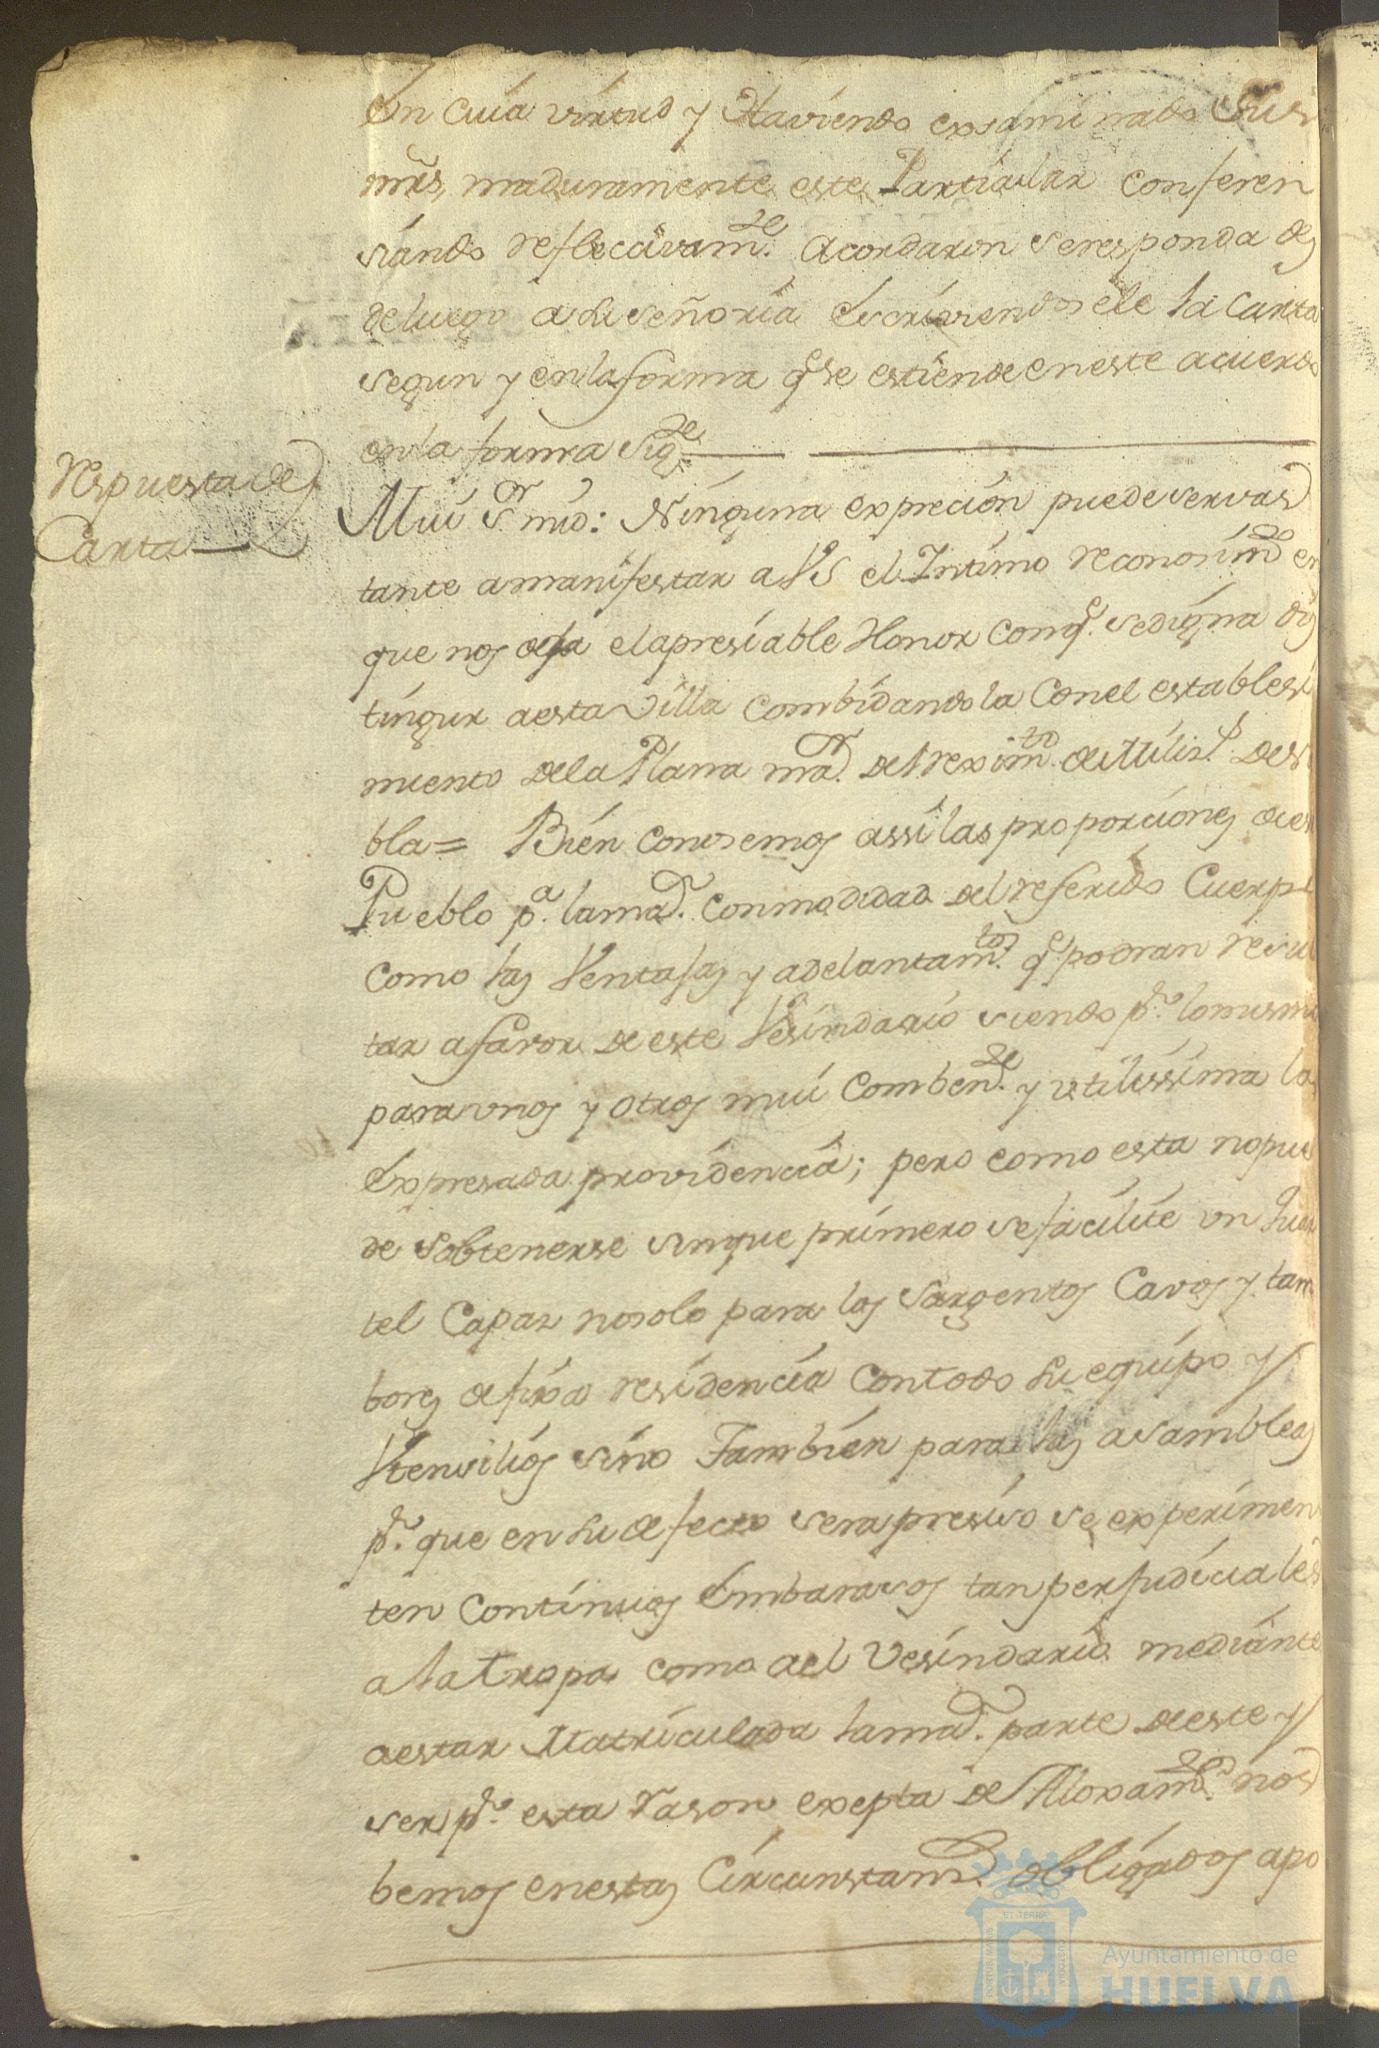 En cuia virtud y Haviendo exsaminado Sus
mrs, maduramente este Particular conferen
siando reflecsivam.te Acordaron se responda des
deluego a Su señoria Escriviendosele la Carta
segun y en la forma q.e se estiende en este acuerdo
en la forma sig.te
Respuesta de
Carta
Mui S.or mio: Ninguna expreción puede ser vas
tante a manifestar a VS el Intimo reconosim.to en
que nos deja el apresiable Honor con q.e se digna dis
tinguir a esta Villa combidandola con el establesi
miento de la Plana ma.r del rexim.to de Milis.s de Si
bla= Bien conosemos assi las proporciones de es
Pueblo p.a la ma.r conmodidad del referido Cuerpo
como las Ventajas y adelantam.tos q.e podran resul
tar a favor de este Vesindario siendo p.r lo mismo
para unos y otros mui comben.te y utilissima la
Expresada providencia; pero como esta no pue
de sobtenerse sin que primero se facilite un Quar
tel Capaz no solo para los Sargentos Cavos y tam
bores de fixa residencia con todo su equipo y
Vtensilios sino Tambien para las asambleas
p.r que en su defecto sera presiso se experimen
ten continuos Embarasos tan perjudiciales
a la tropa como a el Vesindario mediante
a estar Matriculada la ma.r parte de este y
ser p.r esta rason exepta de Aloxam.to nos
bemos en estas Circunstan.s obligados apo
Ayuntamiento de
HUELVA